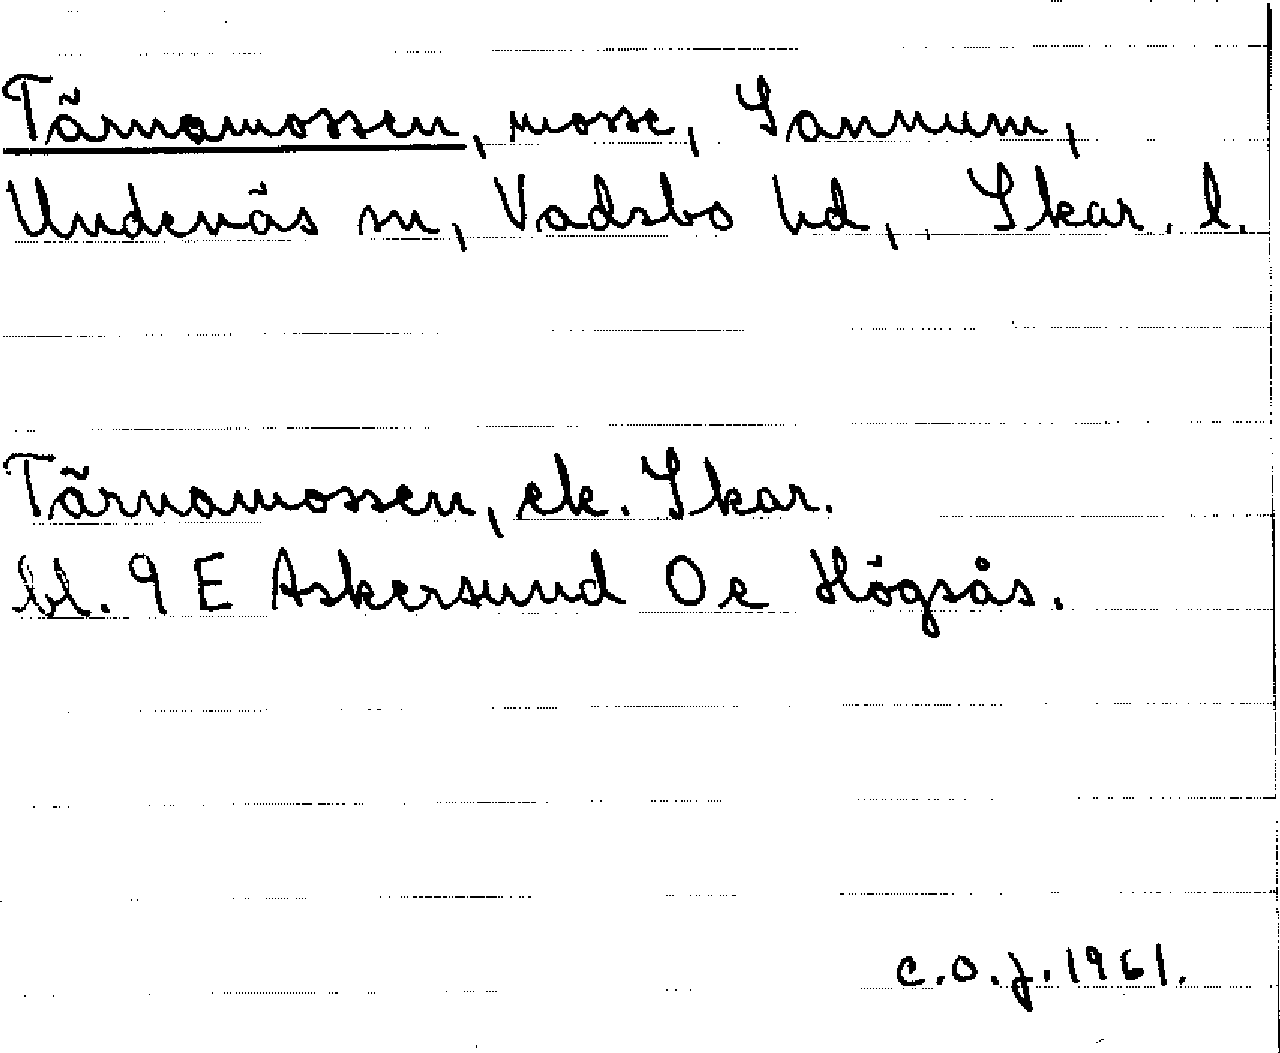 Tärnamossen, mosse, Sannum,
Undenäs sn, Vadsbo hd, Skar. l.
Tärnamossen, ek. Skar.
bl. 9 E Askersund Oe Högsås.
c.o.j. 1961.